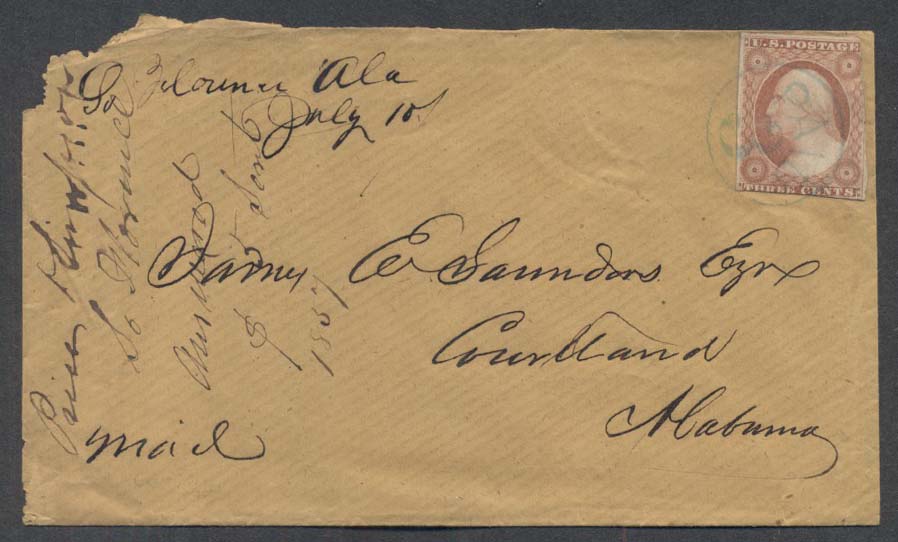 So Florence Ala
July 10
U.S. POSTAGE
THREE CENTS
James E Saunders Esqr
Courtland
Alabama
Mail
Price Simpson
So Florence
Answered
& Sent
1857